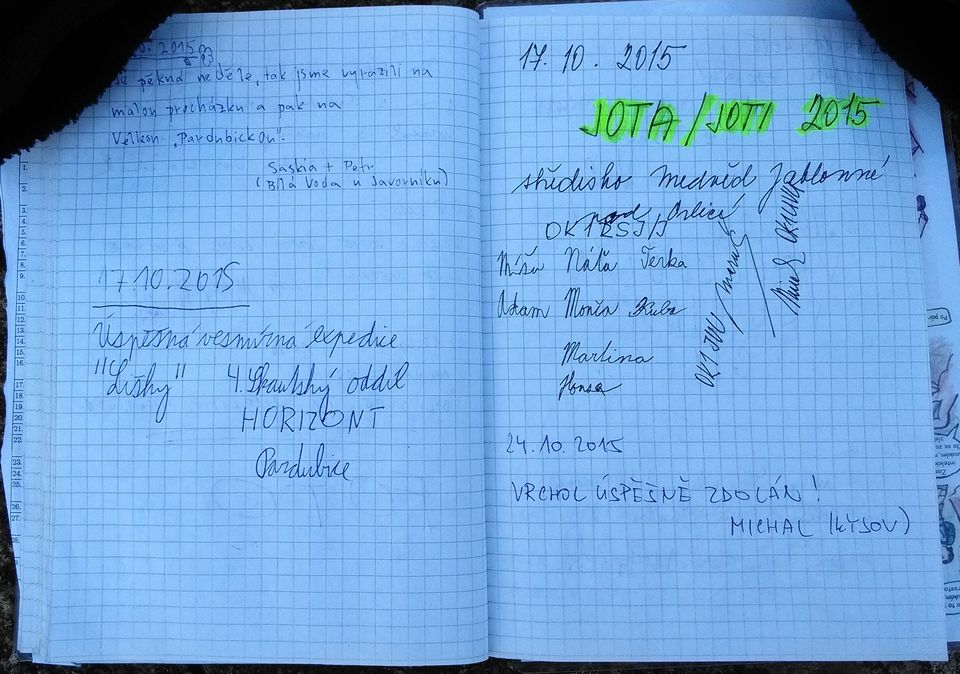 10. 2015
Je pěkná neděle, tak jsme vyrazili na
malou procházku a pak na
Velkou „Pardubickou".
Saskia + Petr
(Bílá Voda u Javorníku)
17.10.2015
Úspěšná vesmírná expedice
"Lišky" 4. Skautský oddíl
HORIZONT
Pardubice
17. 10. 2015
JOTA/JOTI 2015
středisko Medvěd Jablonné
nad Orlicí
Míša Náťa Terka
Adam Monča Kuba
Martina
Honza
24.10.2015
VRCHOL ÚSPĚŠNĚ ZDOLÁN!
MICHAL (KYJOV)